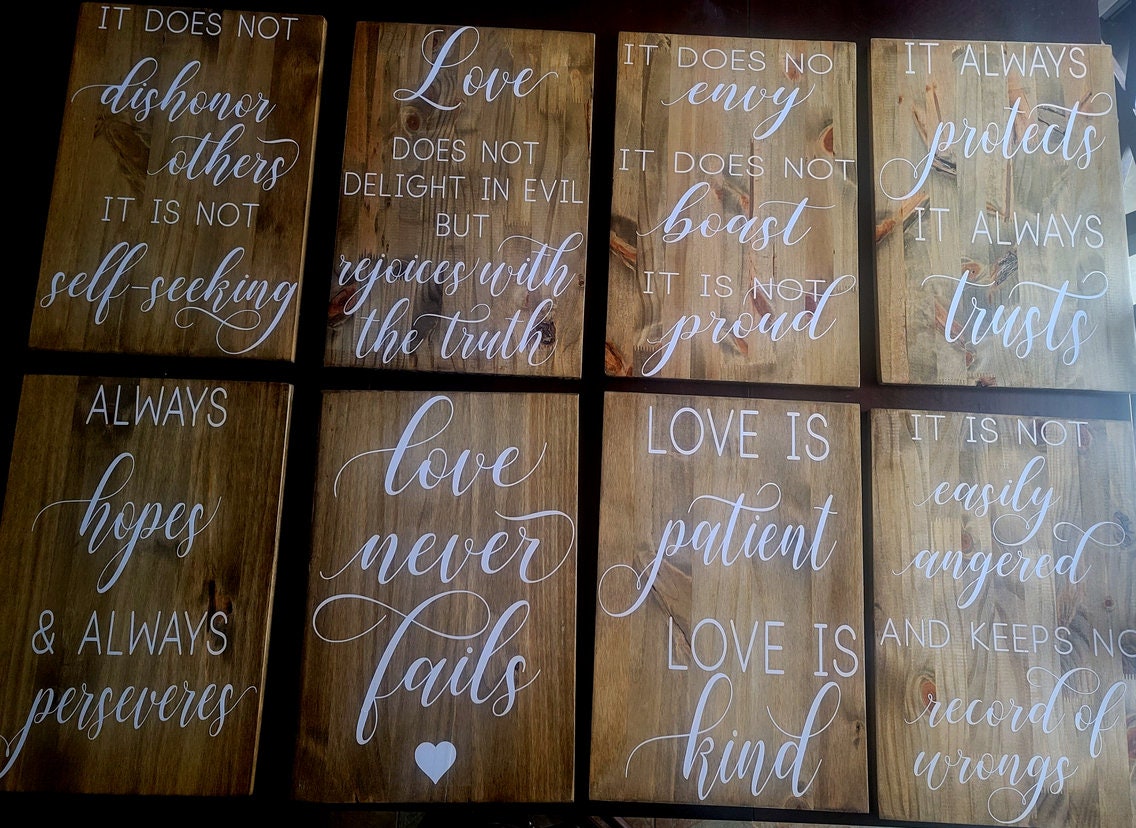 IT DOES NOT
dishonor
others
IT IS NOT
self-seeking
Love
DOES NOT
DELIGHT IN EVIL
BUT
rejoices with
the truth
IT DOES NO
envy
IT DOES NOT
boast
IT IS NOT
proud
IT ALWAYS
protects
IT ALWAYS
trusts
ALWAYS
hopes
& ALWAYS
perseveres
love
never
fails
LOVE IS
patient
LOVE IS
kind
IT IS NOT
easily
angered
AND KEEPS NO
record of
wrongs